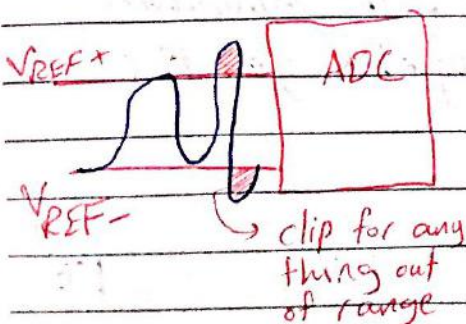 VREF+
ADC
VREF-
clip for any
thing out
of range